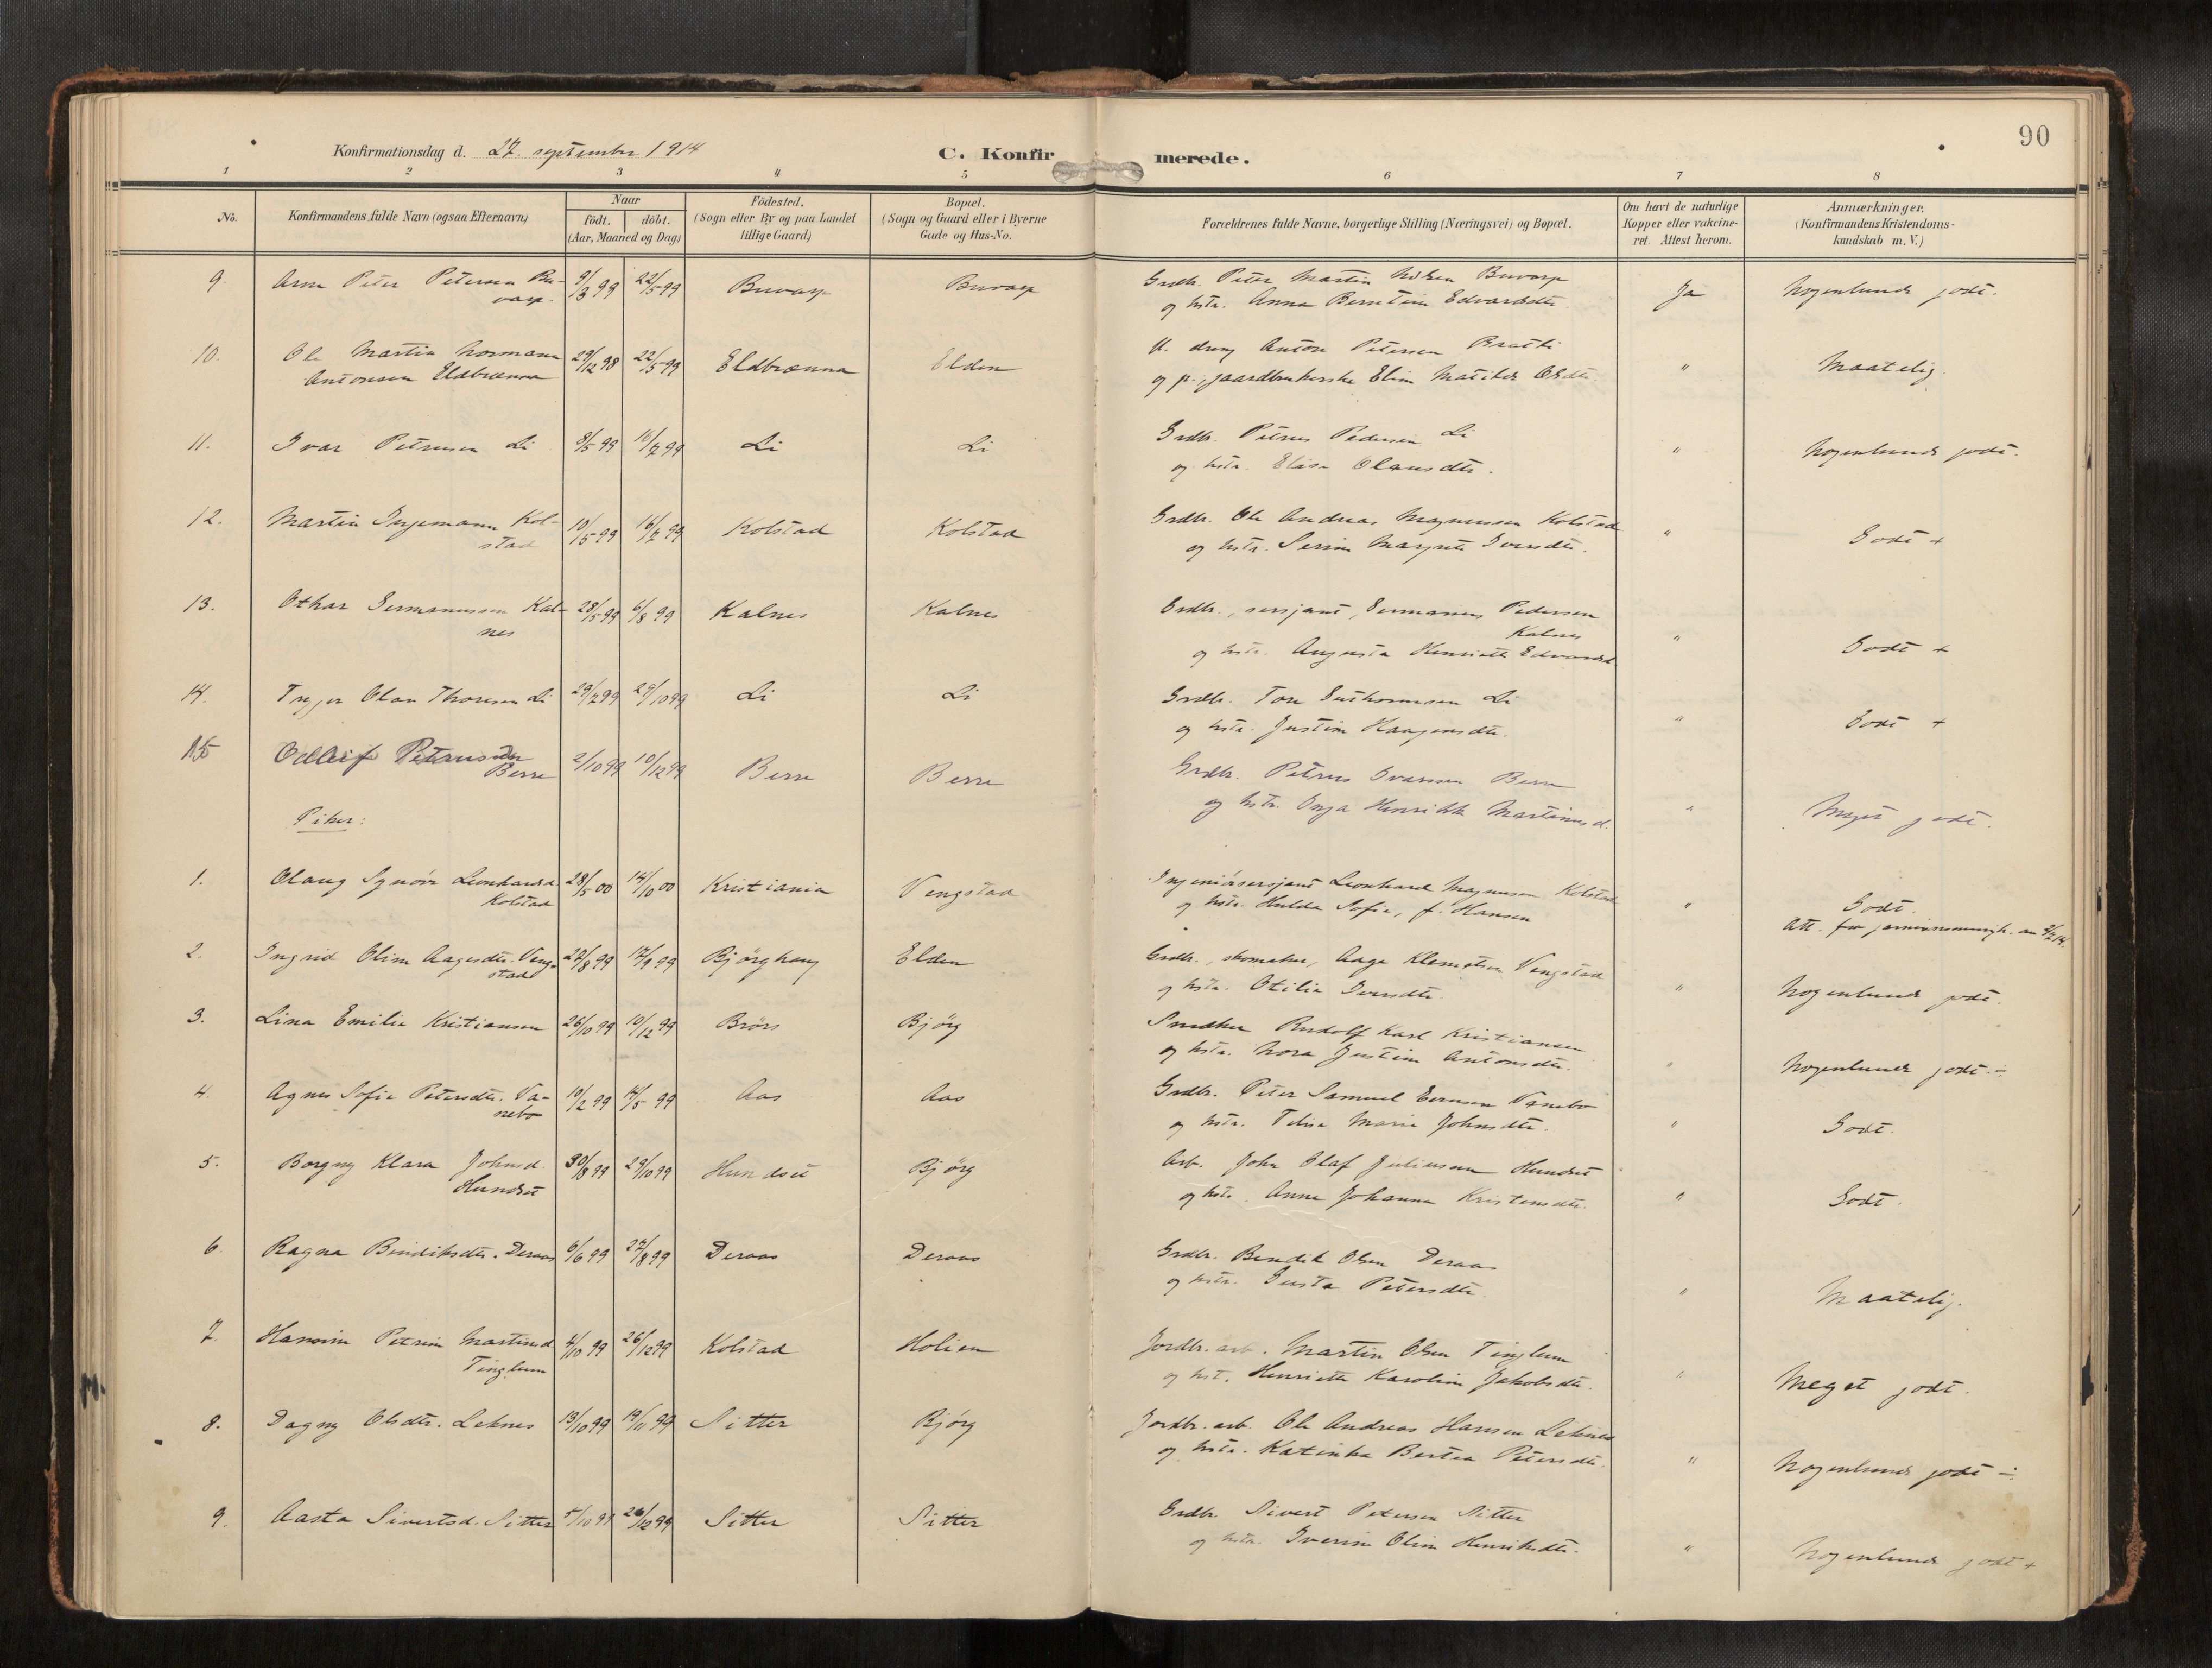 90
Konfirmationsdag d. 27. september 1914
C. Konfirmerede.
1 2 3 4 5 6 7 8
No.
Konfirmandens fulde Navn (ogsaa Efternavn)
Naar
födt. döbt.
(Aar, Maaned og Dag)
Födested.
(Sogn eller By og paa Landet
tillige Gaard)
Bopæl.
(Sogn og Gaard eller i Byerne
Gade og Hus-No.
Forældrenes fulde Navne, borgerlige Stilling (Næringsvei) og Bopæl.
Om havt de naturlige
Kopper eller vakcine-
ret. Attest herom.
Anmærkninger.
(Konfirmandens Kristendoms-
kundskab m. V.)
9. Arne Peter Petersen Bu- 9/3 99 22/5 99 Buvarp Buvarp Grdbr. Peter Martin Nilsen Buvarp Ja Nogenlunde godt.
varp. og hstr. Anna Berntine Edvardsdtr.
10. Ole Martin Normann 29/12 98 22/5 99 Eldbrænna Elden U. dreng Anton Petersen Bratli " Maatelig.
Antonsen Eldbrænna og p., gaardbrukerske Eline Matilde Olsdtr.
11. Ivar Petrusen Li 8/5 99 16/7 99 Li Li Grdbr. Petrus Pedersen Li " Nogenlunde godt.
og hstr. Elise Olausdtr.
12. Martin Ingemann Kol- 10/5 99 16/7 99 Kolstad Kolstad Grdbr. Ole Andreas Magnussen Kolstad " Godt +
stad og hstr. Serine Margrete Iversdtr.
13. Othar Germanussen Kal- 28/5 99 6/8 99 Kalnes Kalnes Grdbr., sersjant, Germanus Pedersen
nes Kalnes " Godt +
og hstr. Augusta Henriette Edvardsd.
14. Trygve Olav Thoresen Li 29/7 99 29/10 99 Li Li Grdbr. Tore Guthormsen Li " Godt +
og hstr. Justine Haagensdtr.
15 Odleif Petrusen 2/10 99 10/12 99 Berre Berre Grdbr. Petrus Ivarsen Berre
Berre og hstr. Inga Henrikke Martinusd. " Meget godt.
Piker:
1. Olaug Synöve Leonhardsd. 28/5 00 14/10 00 Kristiania Vengstad Ingeniörsersjant Leonhard Magnusen Kolstad " Godt.
Kolstad og hstr. Hulda Sofie, f. Hansen
2. Ingrid Oline Aagesdtr. Veng- 22/8 99 17/9 99 Bjørghaug Elden Grdbr., skomaker, Aage Klemetsen Vengstad " Nogenlunde godt.
stad og hstr. Otilie Iversdtr.
3. Lina Emilie Kristiansen 26/10 99 10/12 99 Brörs Bjørg Snedker Rudolf Karl Kristiansen " Nogenlunde godt ÷
og hstr. Nora Justine Antonsdtr.
4. Agnes Sofie Petersdtr. Va- 10/2 99 7/5 99 Aas Aas Grdbr. Peter Samuel Evensen Vanebo " Godt.
nebo og hstr. Marie Johnsdtr.
5. Borgny Klara Johnsd. 30/8 99 29/10 99 Hundset Bjørg Arb. John Olaf Juliussen Hundset " Godt.
Hundset og hstr. Anne Johanna Kristensdtr.
6. Ragna Bendiksdtr. Deraas 6/6 99 27/8 99 Deraas Deraas Grdbr. Bendik Olsen Deraas " Maatelig.
og hstr. Gusta Petersdtr.
7. Hansine Petrine Martinsd. 4/10 99 26/12 99 Kolstad Holien Jordbr. arb. Martin Olsen Tinglum " Meget godt.
Tinglum og hst. Henriette Karoline Jakobsdtr.
8. Dagny Olsdtr. Leknes 13/10 99 19/11 99 Sitter Bjørg Jordbr. arb. Ole Andreas Hansen Leknes " Nogenlunde godt ÷
og hstr. Katinka Bertea Petersdtr.
9. Aasta Sivertsd. Sitter 5/10 99 26/12 99 Sitter Sitter Grdbr. Sivert Petersen Sitter " Nogenlunde godt +
og hstr. Iverine Oline Henriksdtr.